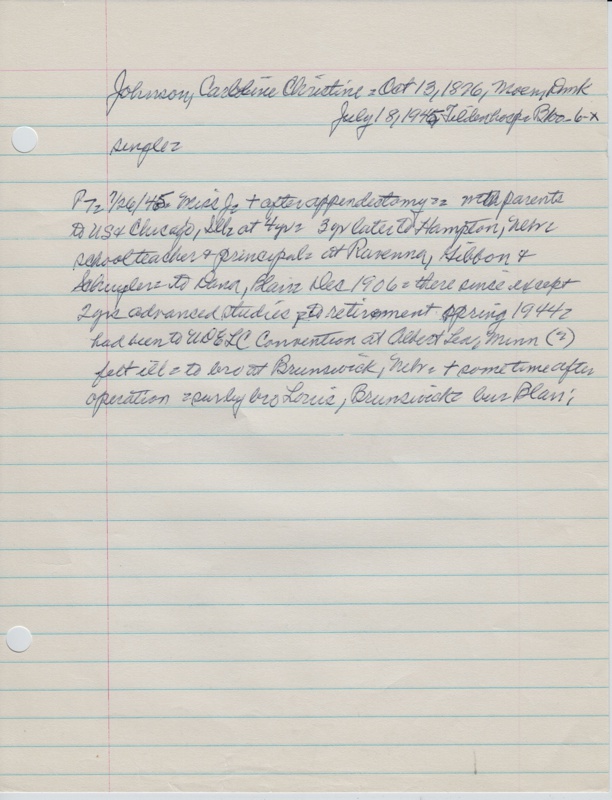 Johnson, Caroline Christine = Oct 13, 1876, Moen, Dmk
July 18, 1945, Tilden hosp = B60-6-x
single =
P 7 = 7/26/45 = Miss J = + after appendictomy = = with parents
to US + Chicago, Ill = at 4 yr = 3 yr later to Hampton, Nebr =
school teacher + principal = at Ravenna, Gibbon +
Schuyler = to Dana, Blair = Dec 1906 = there since except
2 yrs advanced studies = to retirement spring 1944 =
had been to UDELC Convention at Albert Lea, Minn (=)
felt ill = to bro at Brunswick, Nebr = + sometime after
operation = sur by bro Louis, Brunswick = bur Blair;